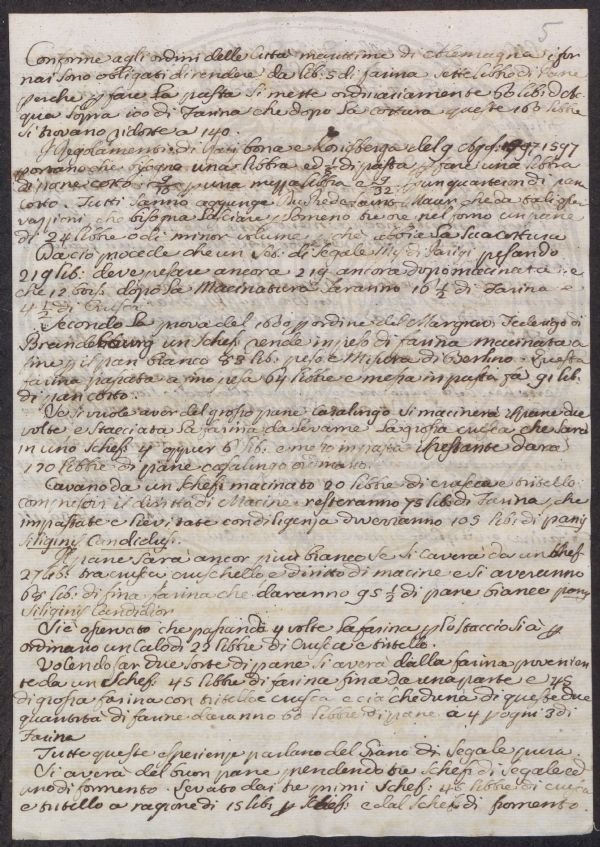 5
Conforme agli ordini delle Città marittime di Alemagna i for
nai sono obligati di rendere da lib: 5 di farina sette libre di Pane
perche p fare la pasta si mette ordinariamente 60 lib: d'ac
qua sopra 100 di Farina che dopo la cottura queste 160 libbre
si trovano ridotte a 140.
Regolamenti di Ratisbona e
1597
portano che bisogna una libbra ed di pasta p fare una libbra
di pane cotto p una mezza libbra e 9/32 p un quarteron di pan
cotto. Tutti sanno aggiunge che da tali osser
vazioni che bisogna lasciare almeno tre ore nel forno un pane
di 24 libbre o di minor volume che abbia la sua cottura
Da ciò procede che un Sch. di Segale di Parigi pesando
219 lib: deve pesare ancora 219 ancora dopo macinata e
che 12 dopo la Macinatura saranno 16 1/2 di Farina e
4 1/2 di Crusca
Secondo la prova del 1680 p ordine del Margrav. Federigo di
Brandebourg un Schef: rende in peso di farina macinata a
fine p il pan bianco 88 lib: peso e Misura di Berlino. Questa
farina passata a fino pesa 64 libbre e messa in pasta fa 91 lib:
di pan cotto.
Se si vuole aver del grosso pane casalingo si macinerà il pane due
volte e stacciata la farina da levarne la grossa crusca che sarà
in uno Schef: 4 oppur 6 lib: e mezo in pasta il restante darà
120 libbre di pane casalingo ordinario.
Cavando da un Schef: macinato 20 libbre di crusca e tritello
compresovi il diritto di Macine resteranno 75 lib: di Farina, che
impastate e lievitate con diligenza diverranno 105 lib: di panis
siliginis Candidus.
Il pane sarà ancor più bianco se si caverà da un Schef
27 lib: tra crusca cruschello e diritto di macine e si averanno
68 lib: di fina farina che daranno 95 1/2 di pane bianco panis
siliginis Candidior
Si è osservato che passando 4 volte la farina p lo staccio si à p
ordinario un calo di 22 libbre di Crusca e tritello.
Volendo far due sorte di pane si averà dalla farina provenien
te da un Schef: 45 libbre di farina fina da una parte e 45
di grossa farina con tritello e crusca e ciascheduna di queste due
quantità di farine daranno 60 libbre di pane a 4 p ogni 3 di
Farina
Tutte queste esperienze parlano del Grano di Segale pura.
Si averà del buon pane prendendo tre Schef: di Segale ed
uno di formento. Levato dai tre primi Schef: 45 libbre di crusca
e tritello a ragione di 15 lib: p Schef: e dal Schef: di formento